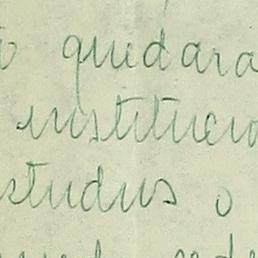 quedara
institucio
studus o